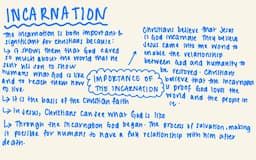 INCARNATION
The incarnation is both important &
significant for christians because:
↳ it shows them that God cared
so much about the world that he
sent his son to show
humans what God is like
and to teach them how
to live.
↳ It is the basis of the Christian faith
↳ In Jesus, Christians can see what God is like
↳ Through the incarnation God began the process of salvation, making
it possible for humans to have a full relationship with him after
death.
IMPORTANCE OF
THE INCARNATION
Christians believe that Jesus
is God incarnate. They believe
Jesus came into the world to
enable the relationship
between God and humanity to
be restored. Christians
believe that the incarnation
is proof God loves the
world and the people in
it.